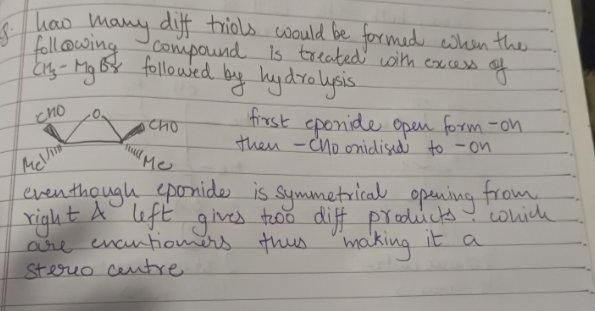 Q. hao many diff triols would be formed when the
following compound is treated with excess of
CH3-MgBr followed by hydrolysis
CHO O CHO
Me Me
first eponide open form -OH
then -CHO onidised to -OH
eventhough eponide is symmetrical opening from
right & left gives too diff products. which
are enantiomers thus making it a
stereo centre